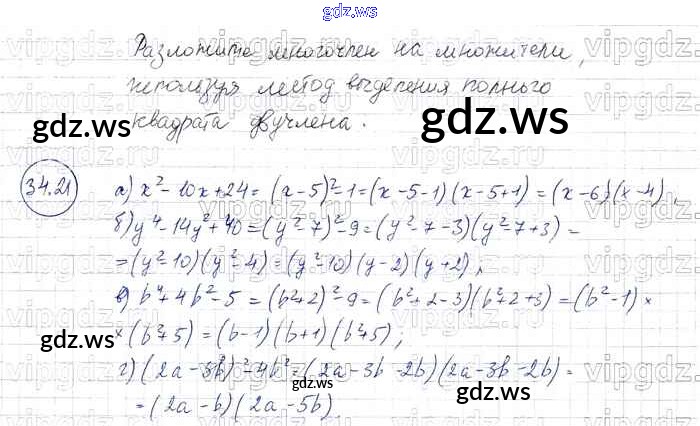 gdz.ws
Разложите многочлен на множители,
используя метод выделения полного
квадрата двучлена.
gdz.ws
gdz.ws
34.21
а) x² - 10x + 24 = (x-5)² - 1 = (x-5-1)(x-5+1) = (x-6)(x-4),
б) y⁴ - 14y² + 40 = (y²-7)² - 9 = (y²-7-3)(y²-7+3) =
= (y²-10)(y²-4) = (y²-10)(y-2)(y+2),
в) b⁴ + 4b² - 5 = (b²+2)² - 9 = (b²+2-3)(b²+2+3) = (b²-1) ×
× (b²+5) = (b-1)(b+1)(b²+5);
gdz.ws
г) (2a-3b)² - 4b² = (2a-3b-2b)(2a-3b-2b) =
gdz.ws
gdz.ws
= (2a-b)(2a-5b)